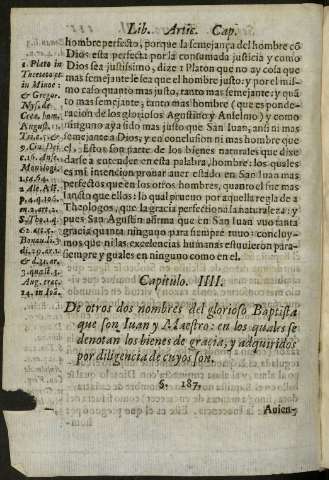 Lib. Artic. Cap.
hombre perfecto, porque la semejança del hombre cõ
Dios esta perfecta por la consumada justicia y como
Dios sea justissimo, dize 1 Platon que no ay cosa que
mas semejante le sea que el hombre justo: y por el mis-
mo caso quanto mas justo, tanto mas semejante: y quã
to mas semejante, tanto mas hombre (que es ponde-
racion de los gloriosos Agustino y Anselmo) y como
ninguno aya sido mas justo que San Iuan, ansi ni mas
semejante a Dios; y en conclusion ni mas hombre que
el. Estos son parte de los bienes naturales que dixe
darse a entender en esta palabra, hombre: los quales
es mi intencion prouar auer estado en San Iuan mas
perfectos que en los otros hombres, quanto el fue mas
sancto que ellos: lo qual prueuo por aquella regla de 2
Theologos, que la gracia perfectiona la naturaleza: y
pues San Agustin afirma que en San Iuan vuo tanta
gracia quanta ninguno para siempre tuuo: concluy-
mos que ni las excelencias humanas estuuieron para
siempre y guales en ninguno como en el.
1 Plato in
Theeteto et
in Minoe :
& Gregor.
Nyss. de
Crea. hom.
August. 1.
Trin. &
9. Ciu. Dei.
Monilogi.
2 Ale. Ass.
S. Tho. 1. q.
Bonau. di. 3
3. quæst. 4.
Aug. trac.
14. in Ioã.
Capitulo. IIII.
De otros dos nombres del glorioso Baptista
que son Iuan y Maestro: en los quales se
denotan los bienes de gracia, y adquiridos
por diligencia de cuyos son.
§. 187.
Auien-